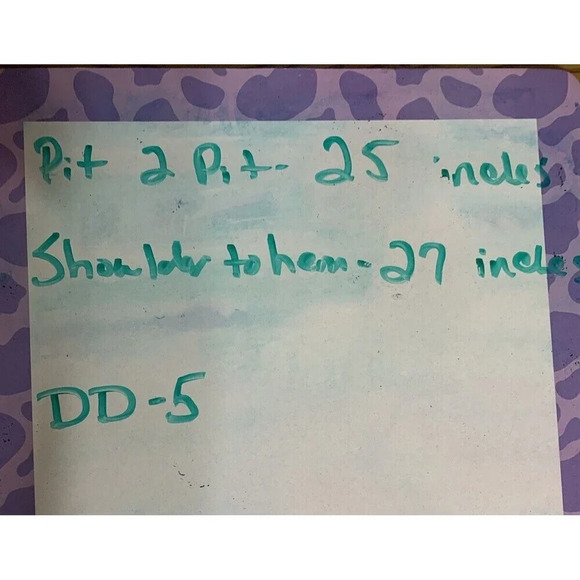 Pit 2 Pit- 25 inches
Shoulder to hem - 27 inches
DD-5